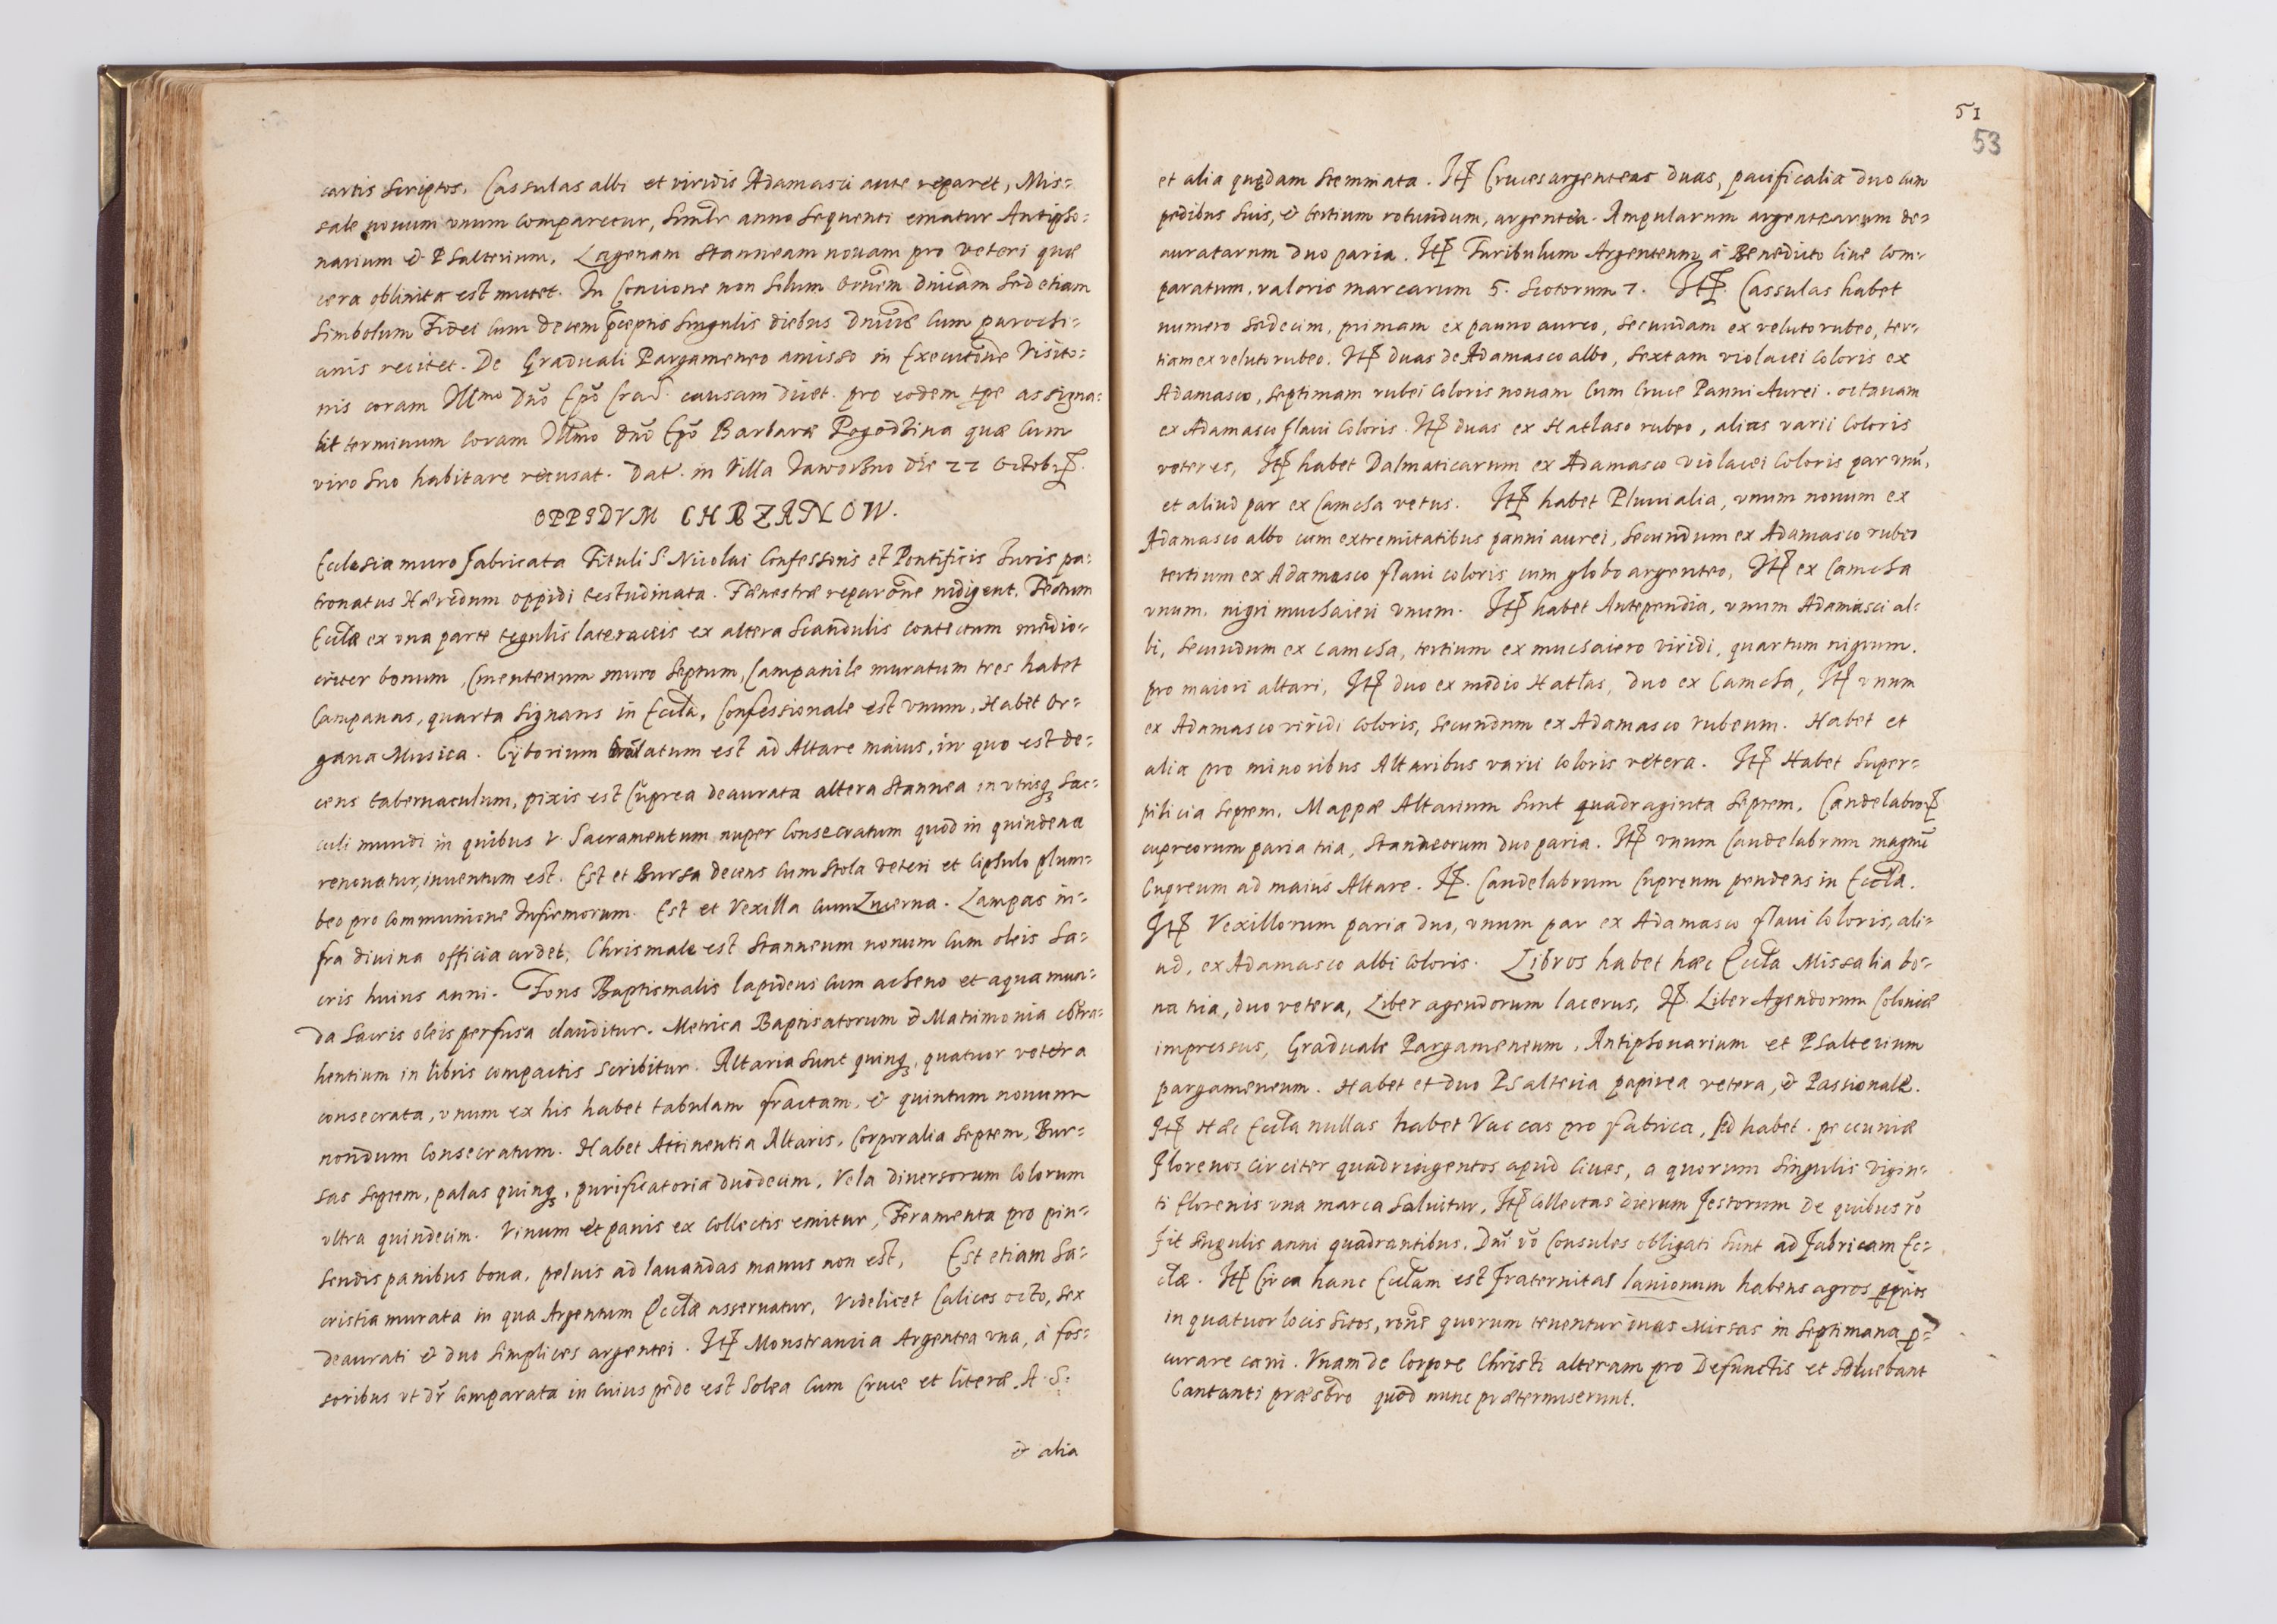 cartis scriptos, Cassulas albi et viridis Adamasci aute reparet, Mis=
sale nouum vnum comparetur, Similr anno sequenti ematur Antipho=
narium & Psalterium. Lagenam stanneam nouam pro veteri quæ
cera oblinita est mutet. In Concione non solum Oroem Dnicam sed etiam
Simbolum Fidei cum decem pceptis singulis diebus Dnicis cum parochi=
anis recitet. De Graduali Pargameneo amisso in Executione Visito=
nis coram Illmo Dno Epo Crac. causam dicet. pro eodem tpe assigna=
bit terminum coram Illmo Dno Epo Barbaræ quæ cum
viro suo habitare recusat. Dat. in Villa Jaworzno die 22 Octobr.
OPPIDVM CHRZANOW.
Ecclesia muro fabricata Tituli S. Nicolai Confessoris et Pontificis Juris pa=
tronatus Hæredum oppidi testudinata. Fænestræ reparone indigent. Tectum
Ecclæ ex vna parte tegulis lateraceis ex altera scandulis contectum medio=
criter bonum, Cmenterium muro septum, Campanile muratum tres habet
Campanas, quarta signans in Eccla, Confessionale est vnum, Habet Or=
gana Musica. Cyborium latum est ad Altare maius, in quo est de=
cens tabernaculum, pixis est Cuprea deaurata altera stannea in vtrisq sac=
culi mundi in quibus V. Sacramentum nuper consecratum quod in quindena
renouatur, inuentum est. Est et Bursa decens cum stola deteri et cipsulo plum=
beo pro communione Infirmorum. Est et Vexilla cum Lucerna. Lampas in=
fra diuina officia ardet, Chrismale est stanneum nouum cum oleis sa=
cris huius anni. Fons Baptismalis lapideus cum acheno et aqua mun=
da sacris oleis perfusa clauditur. Metrica Baptisatorum & Matrimonia cotra=
hentium in libris compactis scribitur. Altaria sunt quinq, quatuor vetera
consecrata, vnum ex his habet tabulam fractam, & quintum nouum
nondum consecratum. Habet Attinentia Altaris, Corporalia septem, Bur=
sas septem, palas quinq, purificatoria duodecim, Vela diuersorum colorum
vltra quindecim. Vinum et panis ex collectis emitur, Feramenta pro pin=
sendis panibus bona, peluis ad lauandas manus non est, Est etiam Sa=
cristia murata in qua Argentum Ecclæ asseruatur, Videlicet Calices octo, sex
deaurati & duo simplices argentei. Itm Monstrancia Argentea vna, á fos=
soribus vt dr comparata in cuius pede est Solea cum Cruce et literæ A. S:
& alia
51
53
et alia quędam stemmata. Itm Cruces argenteas duas, pacificalia duo cum
pedibus suis, & tertium rotundum, argentea. Ampularum argentearum de=
auratarum duo paria. Itm Turibulum Argenteum á Benedicto Ciue com=
paratum, valoris marcarum 5. Scotorum 7. Itm. Cassulas habet
numero sedecim, primam ex panno aureo, secundam ex veluto rubeo, ter=
tiam ex veluto rubeo. Itm duas de Adamasco albo, sextam violacei coloris ex
Adamasco, septimam rubei coloris nouam cum Cruce Panni Aurei. octauam
ex Adamasco flaui coloris. Itm duas ex Hatlaso rubeo, alias varii coloris
veteres, Itm habet Dalmaticarum ex Adamasco violacei coloris par vnu,
et aliud par ex Camcha vetus. Itm habet Pluuialia, vnum nouum ex
Adamasco albo cum extremitatibus panni aurei, secundum ex Adamasco rubeo
tertium ex Adamasco flaui coloris cum globo argenteo, Itm ex Camcha
vnum, nigri muchaieri vnum. Itm habet Antependia, vnum Adamasci al=
bi, secundum ex camcha, tertium ex muchaiero viridi, quartum nigrum.
pro maiori altari, Itm duo ex medio Hatłas, duo ex Camcha, Itm vnum
ex Adamasco viridi coloris, secundum ex Adamasco rubeum. Habet et
alia pro minoribus Altaribus varii coloris vetera. Itm Habet super=
pilicia septem, Mappæ Altarium sunt quadraginta septem, Candelabror
cupreorum paria tria, stanneorum duo paria. Itm vnum Candelabrum magnu
Cupreum ad maius Altare. Itm. Candelabrum cupreum pendens in Eccla.
Itm Vexillorum paria duo, vnum par ex Adamasco flaui coloris, ali=
ud, ex Adamasco albi coloris. Libros habet hæc Eccla Missalia bo=
na tria, duo vetera, Liber agendorum lacerus, Itm. Liber Agendorum Coloniæ
impressus, Graduale Pargameneum, Antiphonarium et Psalterium
pargameneum. Habet et duo Psalteria papirea vetera, & Passionale.
Itm Hæc Eccla nullas habet Vaccas pro fabrica, sed habet. pecuniæ
florenos circiter quadringentos apud ciues, a quorum singulis vigin=
ti florenis vna marca soluitur, Itm Collectas dierum festorum de quibus ro
fit singulis anni quadrantibus. Dni vo Consules obligati sunt ad fabricam Ec=
clæ. Itm Circa hanc Ecclam est fraternitas lanionum habens agros pprios
in quatuor locis sitos, rone quorum tenentur duas Missas in septimana p=
curare cani. Vnam de Corpore Christi alteram pro Defunctis et soluebant
Cantanti præsbro quod nunc prætermiserunt.